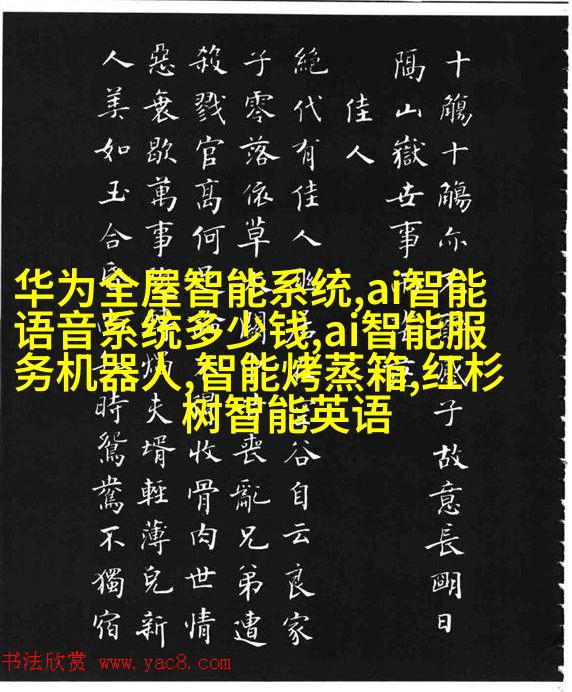 十觴十觴亦感子故意長明日
隔山嶽世事
佳人
絕代有佳人谷自云良家
子零落依草喪亂兄弟遭
殺戮官高何收骨肉世情
惡衰歇萬事夫壻輕薄兒新
人美如玉合時鴛鴦不獨宿
华为全屋智能系统,ai智能
语音系统多少钱,ai智能服
务机器人,智能烤蒸箱,红杉
树智能英语
书法欣赏 www.yac8.com